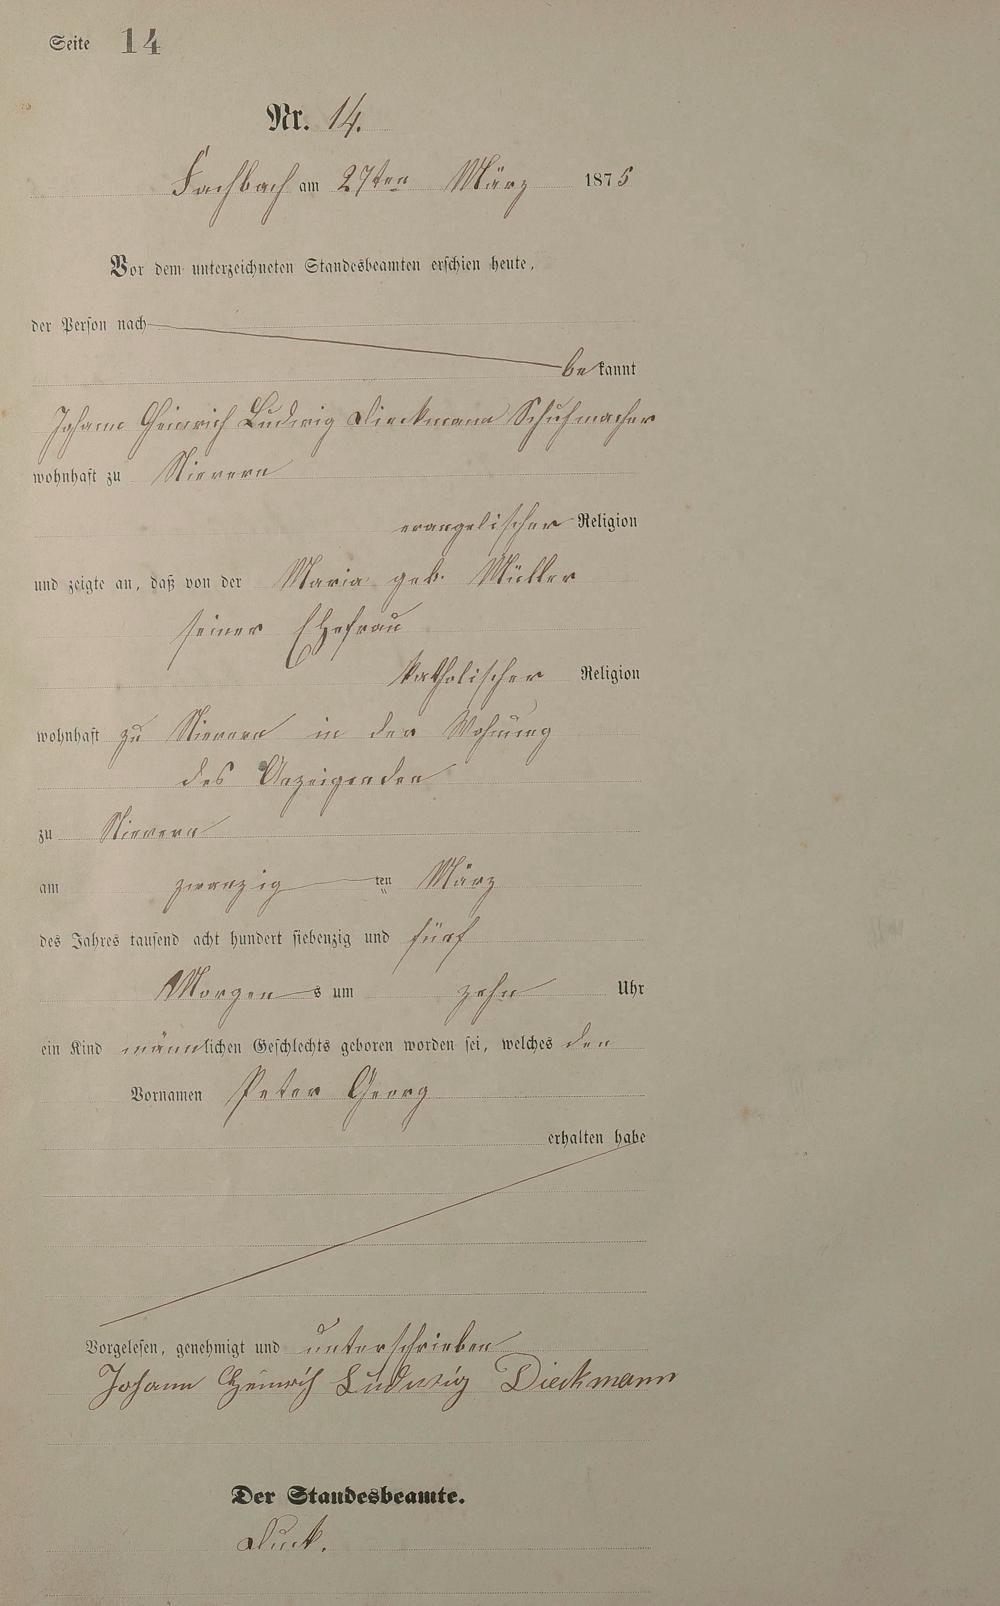 Seite 14
Nr. 14.
Fachbach am 27ten März 1875
Vor dem unterzeichneten Standesbeamten erschien heute,
der Person nach
bekannt
Johann Heinrich Ludwig Dieckmann Schuhmacher
wohnhaft zu Nievern
evangelischer Religion
und zeigte an, daß von der Maria geb. Müller
seiner Ehefrau
katholischer Religion
wohnhaft zu Nievern in der Wohnung
des Anzeigenden
zu Nievern
am zwanzigten März
des Jahres tausend acht hundert siebenzig und fünf
Morgens um zehn Uhr
ein Kind männlichen Geschlechts geboren worden sei, welches den
Vornamen Peter Georg
erhalten habe
Vorgelesen, genehmigt und unterschrieben
Johann Heinrich Ludwig Dieckmann
Der Standesbeamte.